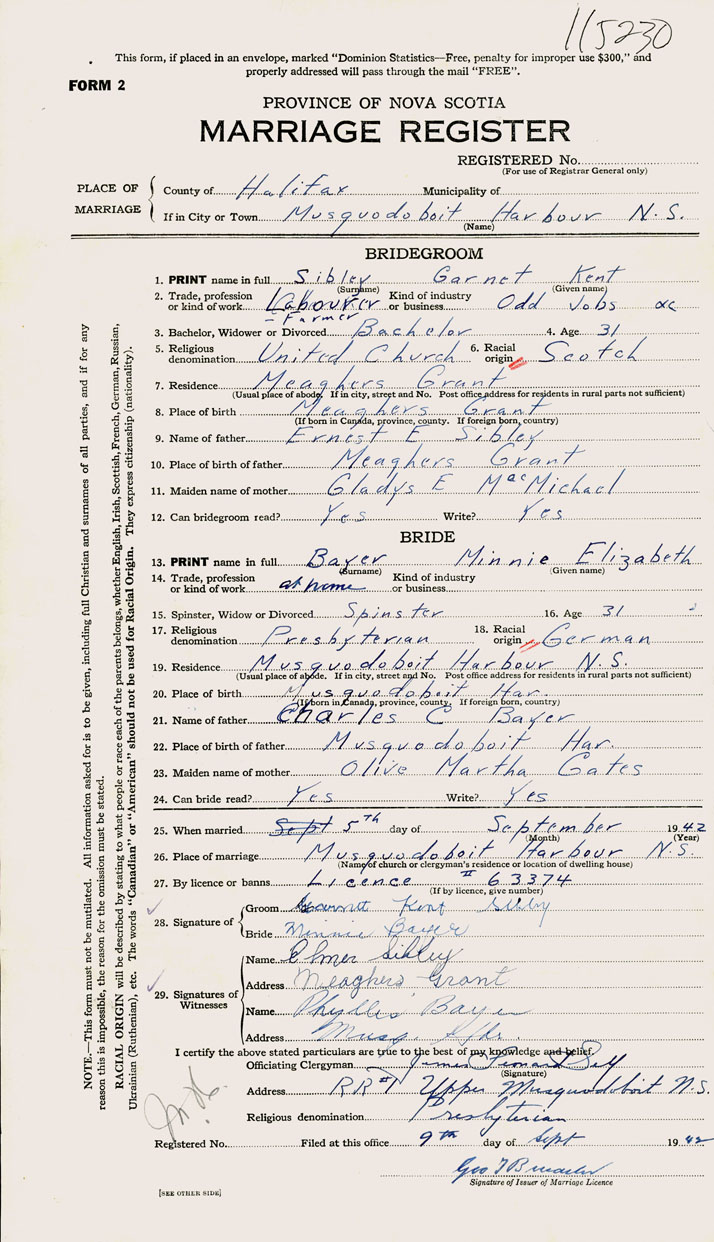 115230
This form, if placed in an envelope, marked "Dominion Statistics—Free, penalty for improper use $300," and
properly addressed will pass through the mail "FREE".
FORM 2
PROVINCE OF NOVA SCOTIA
MARRIAGE REGISTER
REGISTERED No.
(For use of Registrar General only)
PLACE OF MARRIAGE
County of Halifax Municipality of
If in City or Town Musquodoboit Harbour N.S.
(Name)
BRIDEGROOM
1. PRINT name in full Sibley Garnet Kent
(Surname) (Given name)
2. Trade, profession or kind of work Labourer Kind of industry or business Odd Jobs
– Farmer
3. Bachelor, Widower or Divorced Bachelor 4. Age 31
5. Religious denomination United Church 6. Racial origin Scotch
7. Residence Meaghers Grant
(Usual place of abode. If in city, street and No. Post office address for residents in rural parts not sufficient)
8. Place of birth Meaghers Grant
(If born in Canada, province, county. If foreign born, country)
9. Name of father Ernest E Sibley
10. Place of birth of father Meaghers Grant
11. Maiden name of mother Gladys E MacMichael
12. Can bridegroom read? Yes Write? Yes
BRIDE
13. PRINT name in full Bayer Minnie Elizabeth
(Surname) (Given name)
14. Trade, profession or kind of work at home Kind of industry or business
15. Spinster, Widow or Divorced Spinster 16. Age 31
17. Religious denomination Presbyterian 18. Racial origin German
19. Residence Musquodoboit Harbour N.S.
(Usual place of abode. If in city, street and No. Post office address for residents in rural parts not sufficient)
20. Place of birth Musquodoboit Har.
(If born in Canada, province, county. If foreign born, country)
21. Name of father Charles C Bayer
22. Place of birth of father Musquodoboit Har.
23. Maiden name of mother Olive Martha Gates
24. Can bride read? Yes Write? Yes
25. When married Sept 5th day of September 1942
(Month) (Year)
26. Place of marriage Musquodoboit Harbour N.S.
(Name of church or clergyman's residence or location of dwelling house)
27. By licence or banns Licence # 63374
(If by licence, give number)
28. Signature of
Groom Garnet Kent Sibley
Bride Minnie Bayer
29. Signatures of Witnesses
Name Elmer Sibley
Address Meaghers Grant
Name Phyllis Bayer
Address Musq. Hbr.
I certify the above stated particulars are true to the best of my knowledge and belief.
Officiating Clergyman James
(Signature)
Address RR#1 Upper Musquodoboit N.S.
Religious denomination Presbyterian
Registered No. Filed at this office 9th day of Sept 1942
Geo
Signature of Issuer of Marriage Licence
[SEE OTHER SIDE]
NOTE.—This form must not be mutilated. All information asked for is to be given, including full Christian and surnames of all parties, and if for any
reason this is impossible, the reason for the omission must be stated.
RACIAL ORIGIN will be described by stating to what people or race each of the parents belongs, whether English, Irish, Scottish, French, German, Russian,
Ukrainian (Ruthenian), etc. The words "Canadian" or "American" should not be used for Racial Origin. They express citizenship (nationality).